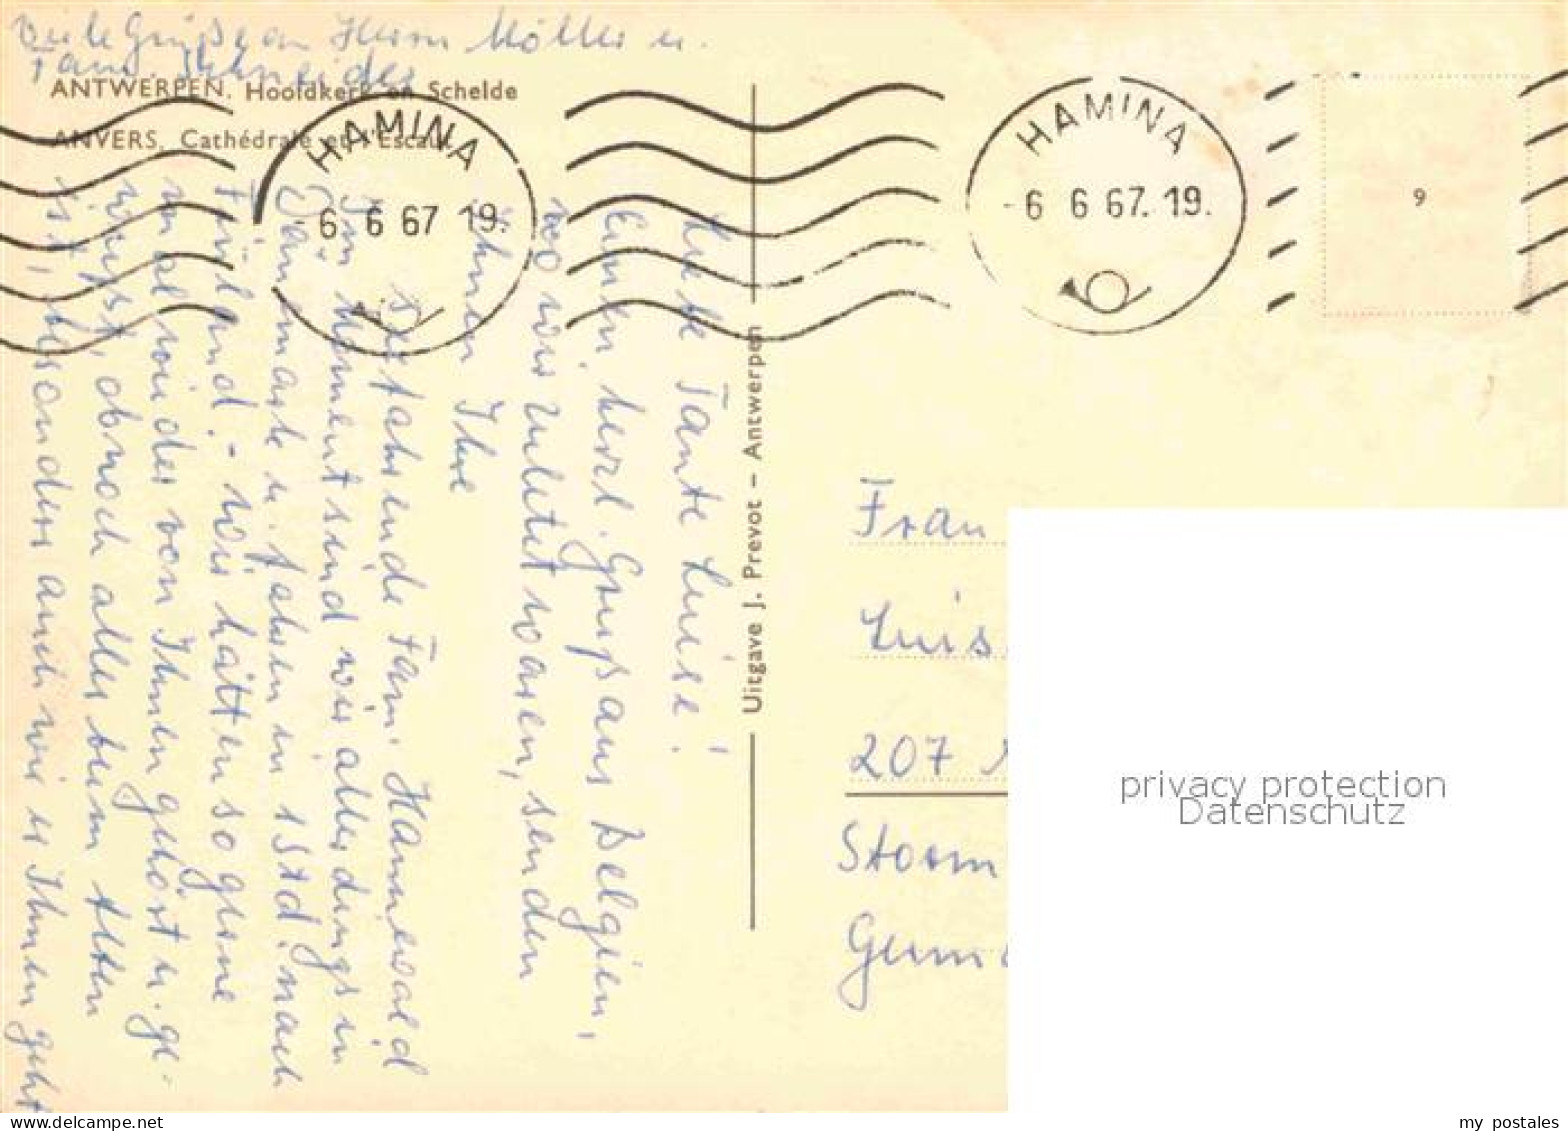 Viele Grüße an Herrn Möller u.
Fam. Schneider
ANTWERPEN. Hoofdkerk en Schelde
ANVERS. Cathédrale et l'Escaut
HAMINA
6 6 67 19.
HAMINA
- 6 6 67. 19.
9
Liebe Tante Luise!
Einen herzl. Gruß aus Belgien,
wo wir zuletzt waren, senden
Ihnen Ihre
seefahrende Fam. Hannewald
Im Moment sind wir allerdings in
Dänemark u. fahren in 1 Std. nach
Finnland. – Wir hätten so gerne
mal wieder von Ihnen gehört u. ge-
wußt, ob noch alles beim Alten
ist, besonders auch wie es Ihnen geht
Uitgave J. Prevot – Antwerpen
Frau
Luis
207
Storm
Germ
privacy protection
Datenschutz
my postales